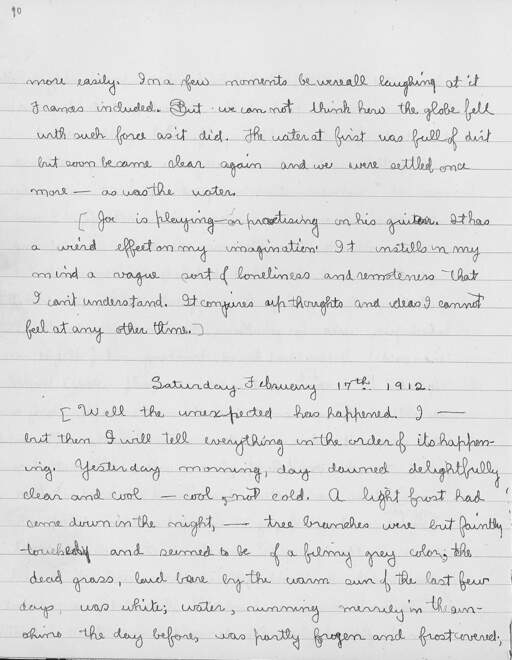 90
more easily. In a few moments be we were all laughing at it
Frances included. But we can not think how the globe fell
with such force as it did. The water at first was full of dirt
but soon became clear again and we were settled once
more — as was the water.
[ Joe is playing — or practising on his guitar. It has
a weird effect on my imagination. It instills in my
mind a vague sort of loneliness and remoteness that
I can't understand. It conjures up thoughts and ideas I cannot
feel at any other time.]
Saturday February 17th 1912.
[ Well the unexpected has happened. I —
but then I will tell everything in the order of its happen-
ing. Yesterday morning, day dawned delightfully
clear and cool — cool, not cold. A light frost had
come down in the night, — tree branches were but faintly
touched and seemed to be of a filmy grey color; the
dead grass, laid bare by the warm sun of the last few
days, was white; water, running merrily in the sun-
shine the day before, was partly frozen and frost covered;